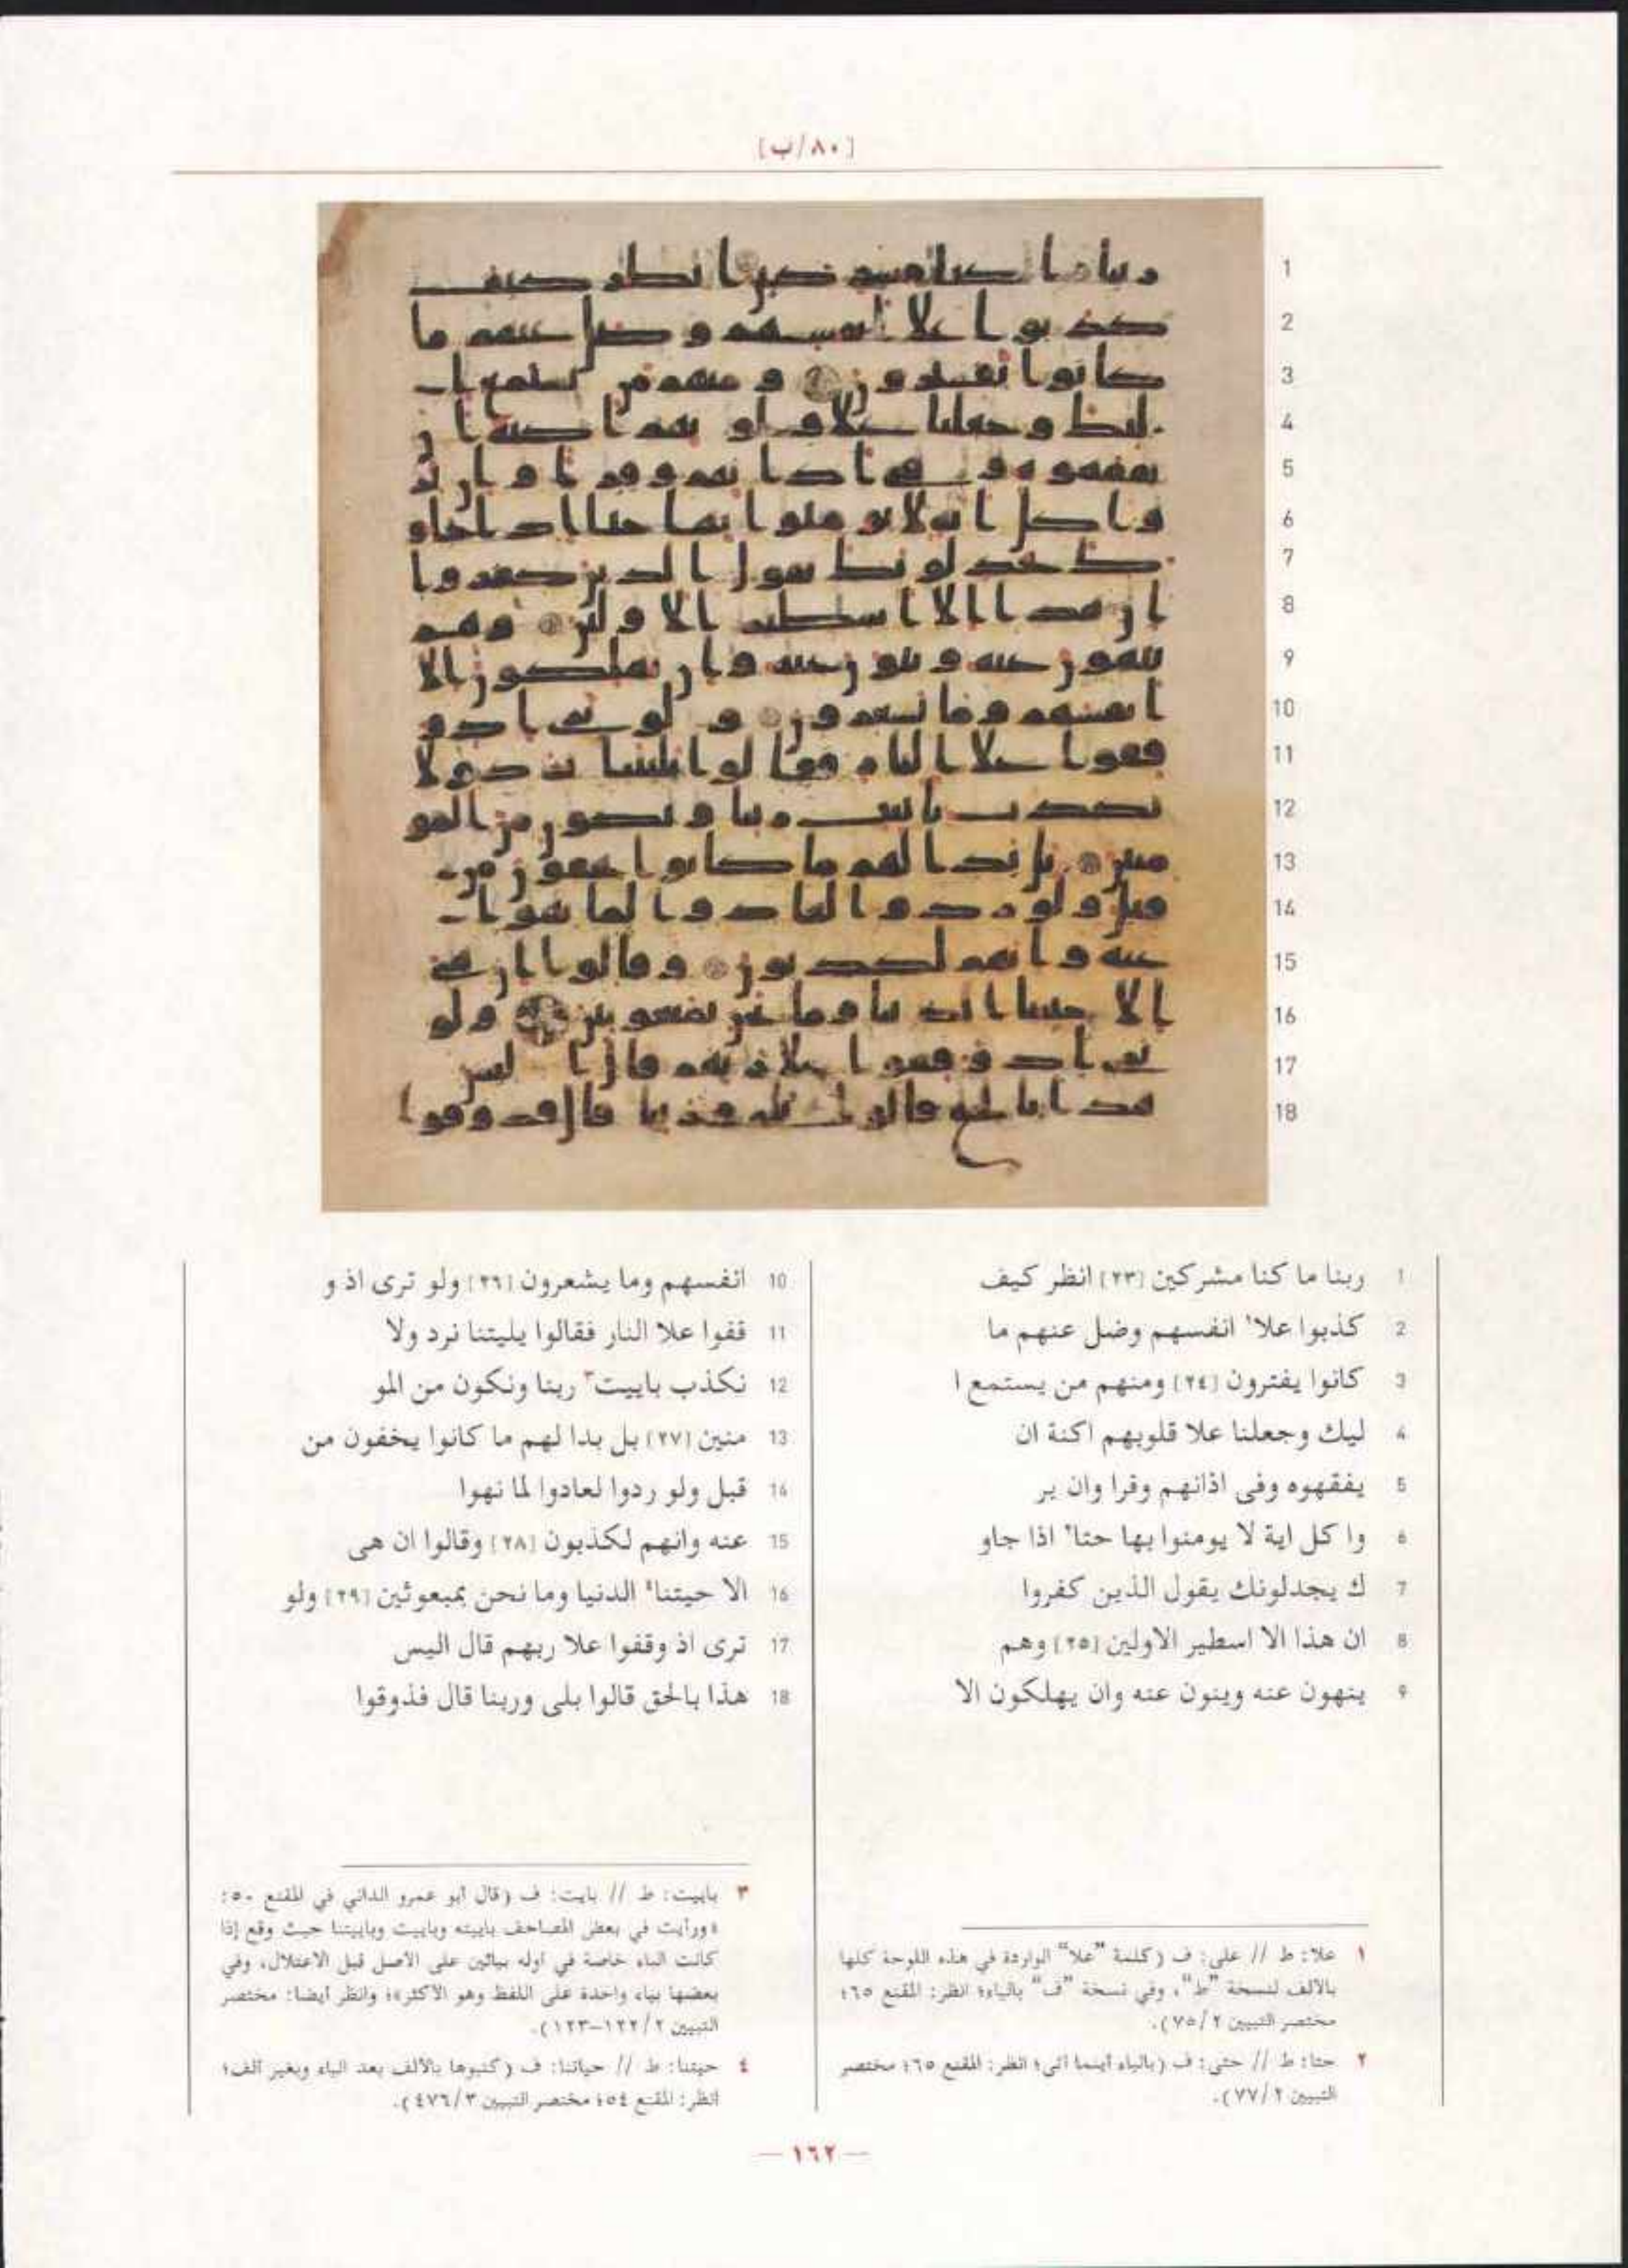 [٨٠/ب]
1 ربنا ما كنا مشركين [٢٣] انظر كيف
2 كذبوا علا١ انفسهم وضل عنهم ما
3 كانوا يفترون [٢٤] ومنهم من يستمع ا
4 ليك وجعلنا علا قلوبهم اكنة ان
5 يفقهوه وفى اذانهم وقرا وان ير
6 وا كل اية لا يومنوا بها حتا٢ اذا جاو
7 ك يجدلونك يقول الذين كفروا
8 ان هذا الا اسطير الاولين [٢٥] وهم
9 ينهون عنه وينون عنه وان يهلكون الا
10 انفسهم وما يشعرون [٢٦] ولو ترى اذ و
11 قفوا علا النار فقالوا يليتنا نرد ولا
12 نكذب باييت٣ ربنا ونكون من المو
13 منين [٢٧] بل بدا لهم ما كانوا يخفون من
14 قبل ولو ردوا لعادوا لما نهوا
15 عنه وانهم لكذبون [٢٨] وقالوا ان هى
16 الا حيتنا٤ الدنيا وما نحن بمبعوثين [٢٩] ولو
17 ترى اذ وقفوا علا ربهم قال اليس
18 هذا بالحق قالوا بلى وربنا قال فذوقوا
١ علا: ط // على: ف (كلمة "علا" الواردة في هذه اللوحة كلها
بالألف لنسخة "ط"، وفي نسخة "ف" بالياء؛ انظر: المقنع ٦٥؛
مختصر التبيين ٢/٧٥).
٢ حتا: ط // حتى: ف (بالياء أينما أتى؛ انظر: المقنع ٦٥؛ مختصر
التبيين ٢/٧٧).
٣ باييت: ط // بايت: ف (قال أبو عمرو الداني في المقنع ٥٠:
«ورأيت في بعض المصاحف باييته وباييت وباييتنا حيث وقع إذا
كانت الباء خاصة في أوله بيائين على الأصل قبل الاعتلال، وفي
بعضها بياء واحدة على اللفظ وهو الأكثر»؛ وانظر أيضا: مختصر
التبيين ٢/١٢٢–١٢٣).
٤ حيتنا: ط // حياتنا: ف (كتبوها بالألف بعد الياء وبغير ألف؛
انظر: المقنع ٥٤؛ مختصر التبيين ٣/٤٧٦).
— ١٦٢ —